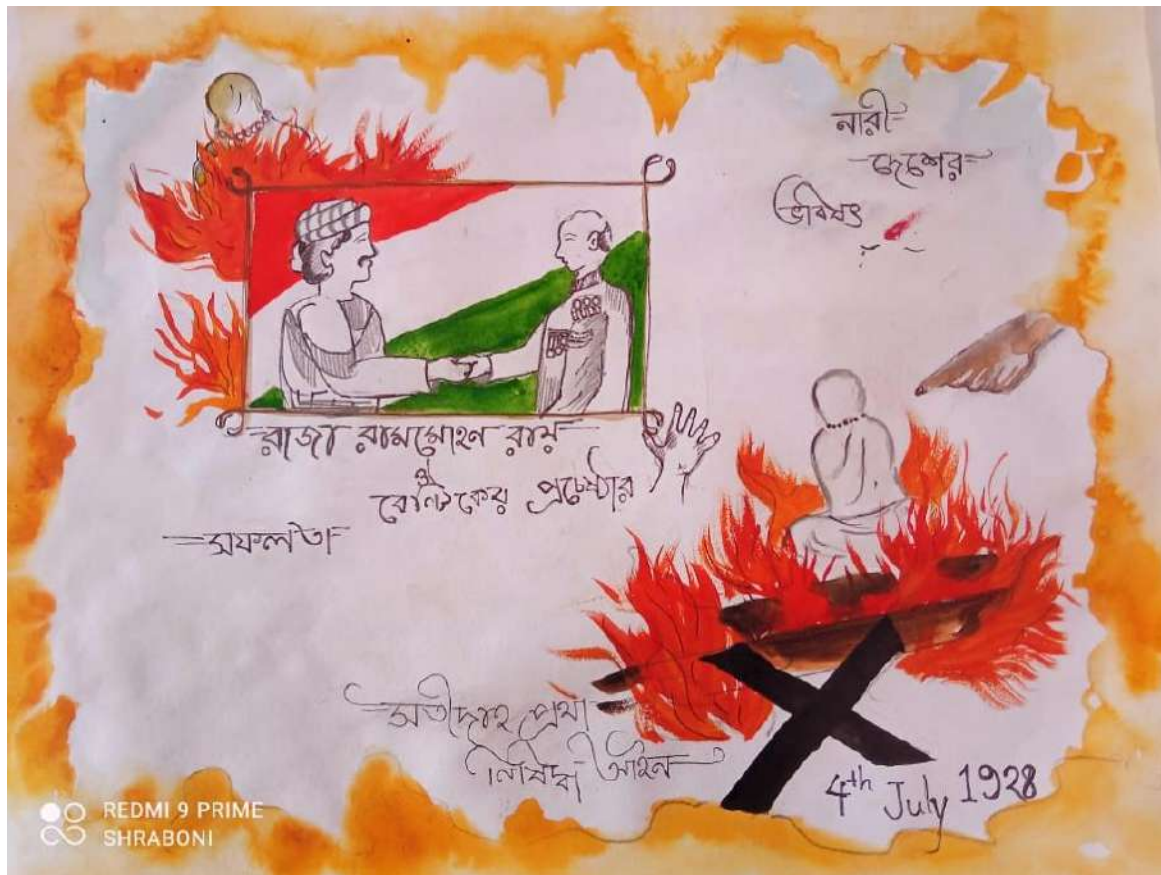 নারী
দেশের
ভবিষৎ
রাজা রামমোহন রায়
ও
বেন্টিকের প্রচেষ্ঠার
সফলতা
সতীদাহ প্রথা
নিষিদ্ধ আইন
4th July 1928
REDMI 9 PRIME
SHRABONI